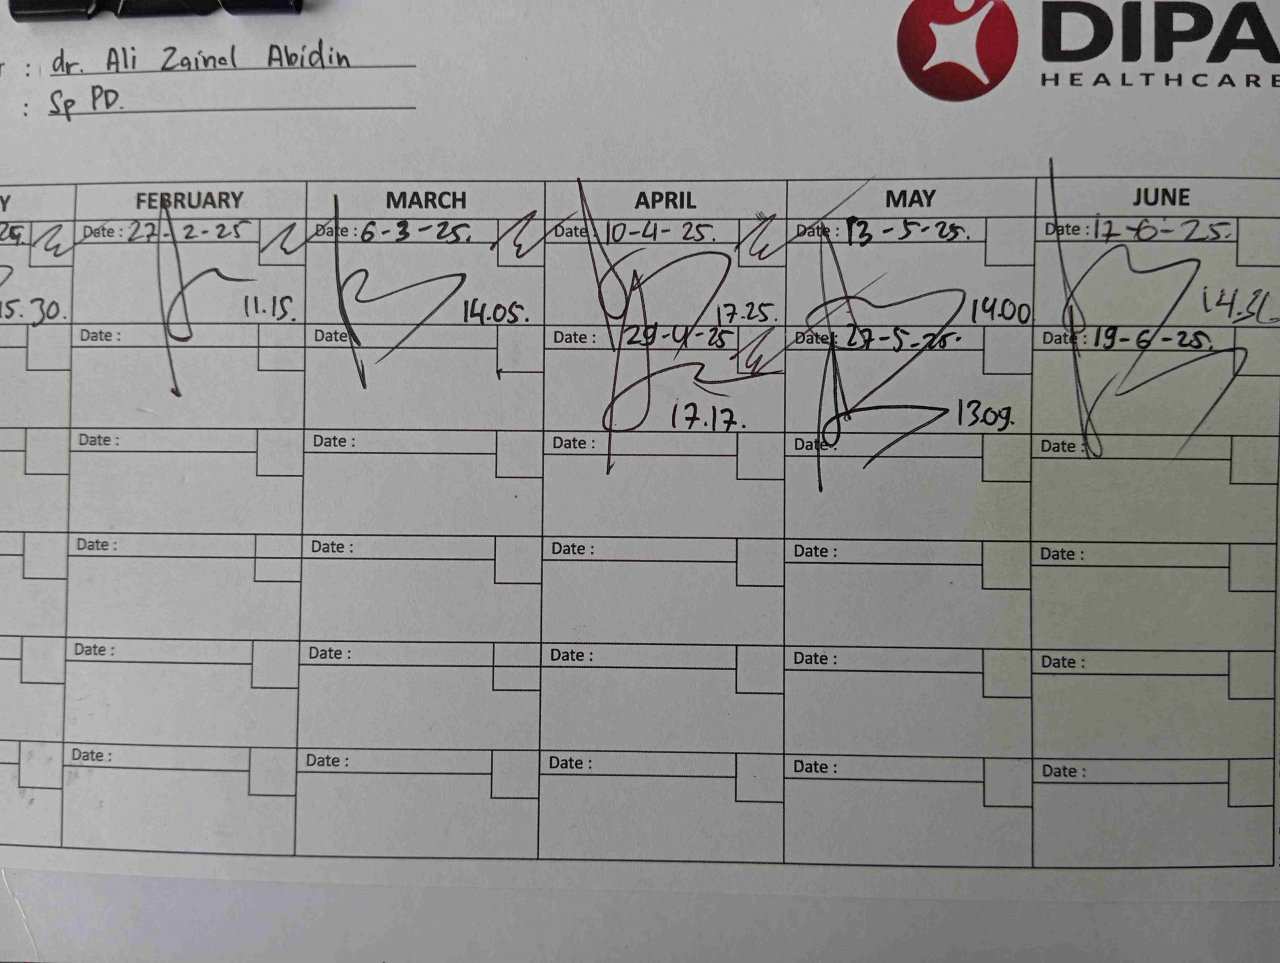 : dr. Ali Zainal Abidin
: Sp PD.
DIPA
HEALTHCARE
Y FEBRUARY MARCH APRIL MAY JUNE
25 Date : 27-2-25 Date : 6-3-25. Date : 10-4-25. Date : 13-5-25. Date : 17-6-25.
15.30. 11.15. 14.05. 17.25. 14.00
Date : Date Date : 29-4-25 Date : 27-5-25. Date : 19-6-25.
17.17. 13.09.
Date : Date : Date : Date Date :
Date : Date : Date : Date : Date :
Date : Date : Date : Date : Date :
Date : Date : Date : Date : Date :